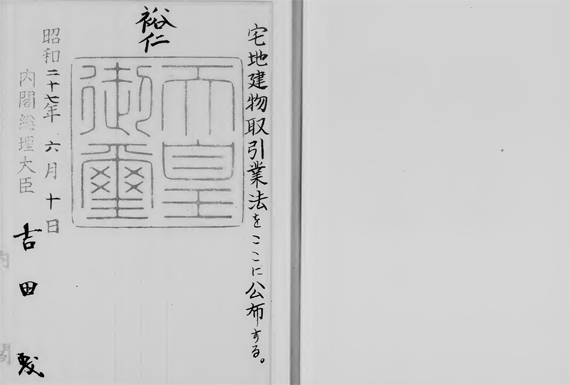 宅地建物取引業法をここに公布する。
裕仁
天皇
御璽
昭和二十七年六月十日
内閣総理大臣
吉田茂